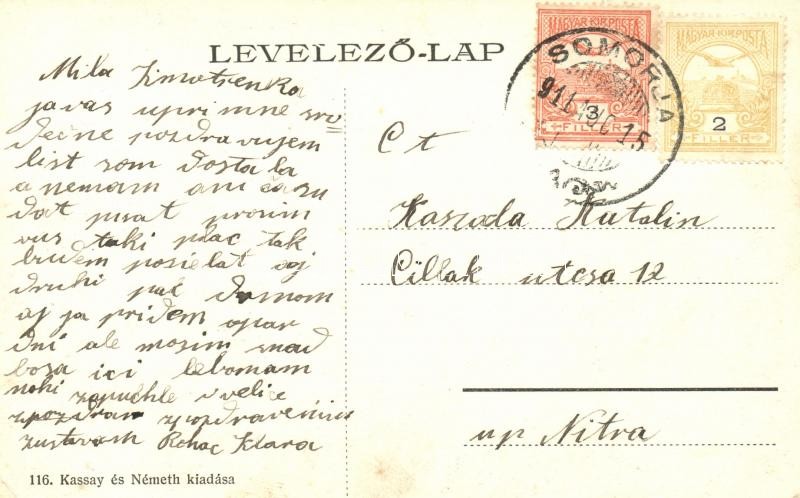 LEVELEZŐ-LAP
MAGYAR KIR. POSTA
3
FILLÉR
MAGYAR KIR. POSTA
2
FILLÉR
SOMORJA
911 AUG 15
Mila
ja vas uprimne sro
dečne pozdravujem
list som dostala
a nemam ani času
dat pisat prosim
vas taki plac tak
budem posielat aj
druhi pac damom
aj ja pridem opar
dni ale mosim snad
bosa ici lebo mam
nohi zapuchle v velice
zpozdravenim
zustavam Rohac Klara
C t
Kaszoda Katalin
Cillak utcsa 12
up Nitra
116. Kassay és Németh kiadása